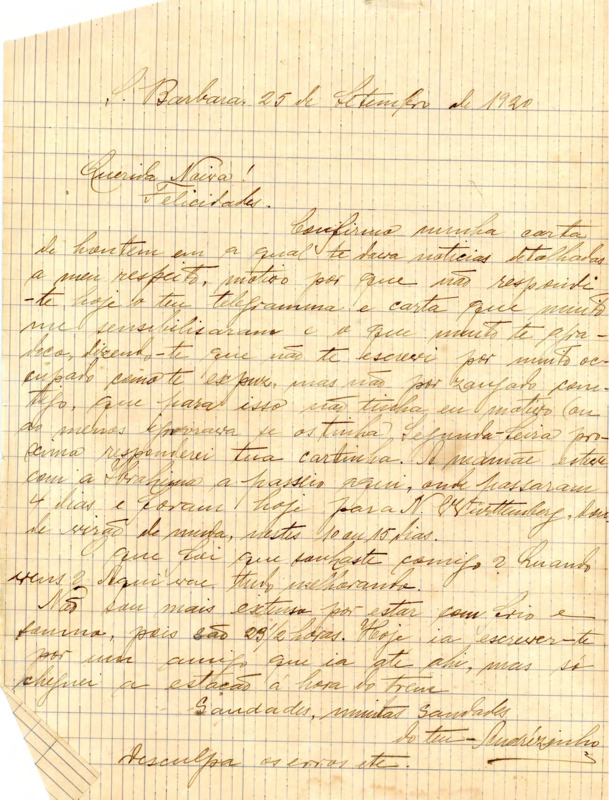 S. Barbara, 25 de Setembro de 1920
Querida Naiva!
Felicidades.
Confirmo minha carta
de hontem em a qual te dava noticias detalhadas
a meu respeito, motivo por que não respondi
-te hoje o teu telegramma e carta que muito
me sensibilisaram e o que muito te agra-
deço, dizendo-te que não te escrevi por muito oc-
cupado como te expuz, mas não por zangado com-
tigo, que para isso não tinha eu motivo (ou
ao menos ignorava se os tinha). Segunda-feira pro-
xima responderei tua cartinha. A mamãe esteve
com a a passeio aqui, onde passaram
4 dias e foram hoje para N. Württemberg, don-
de virão de muda, nestes 10 ou 15 dias.
que foi que sonhaste comigo? Quando
vens? Aqui vae tudo melhorando.
Não sou mais extenso por estar com frio e
somno, pois são 23 1/2 horas. Hoje ia escrever-te
por um amigo que ia até ahi, mas só
cheguei a estação á hora do trem
Saudades, muitas saudades
do teu - Andrézinho
Desculpa os erros etc.